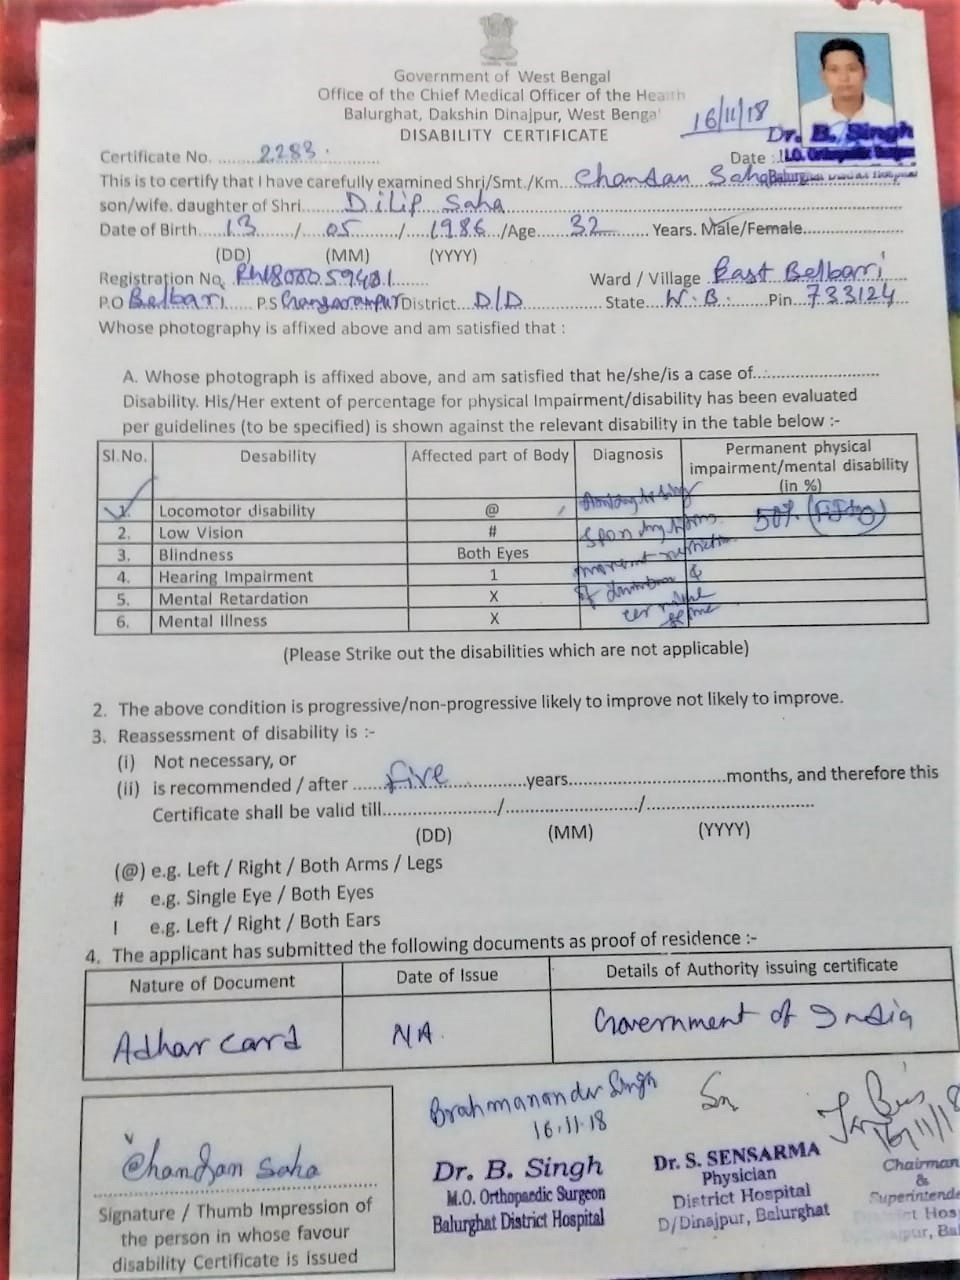 Government of West Bengal
Office of the Chief Medical Officer of the Health
Balurghat, Dakshin Dinajpur, West Bengal
DISABILITY CERTIFICATE
16/11/18
Dr. B. Singh
Certificate No. ........2283.............
Date :
M.O. Orthopaedic Surgeon
Balurghat District Hospital
This is to certify that I have carefully examined Shri/Smt./Km...Chandan Saha
son/wife. daughter of Shri.......Dilip Saha
Date of Birth.....13....../....05....../....1986.../Age......32...... Years. Male/Female....................
(DD) (MM) (YYYY)
Registration No. Ward / Village East Belbari
P.O Belbari..... P.S Gangarampur District... D/D.............. State... W.B. ......Pin..733124...
Whose photography is affixed above and am satisfied that :
A. Whose photograph is affixed above, and am satisfied that he/she/is a case of........................
Disability. His/Her extent of percentage for physical Impairment/disability has been evaluated
per guidelines (to be specified) is shown against the relevant disability in the table below :-
Sl.No. Desability Affected part of Body Diagnosis Permanent physical impairment/mental disability (in %)
1. Locomotor disability @ 50% (Fifty)
2. Low Vision #
3. Blindness Both Eyes
4. Hearing Impairment 1
5. Mental Retardation X
6. Mental Illness X
(Please Strike out the disabilities which are not applicable)
2. The above condition is progressive/non-progressive likely to improve not likely to improve.
3. Reassessment of disability is :-
(i) Not necessary, or
(ii) is recommended / after ......five..............years...............................months, and therefore this
Certificate shall be valid till......................./........................../................................
(DD) (MM) (YYYY)
(@) e.g. Left / Right / Both Arms / Legs
# e.g. Single Eye / Both Eyes
I e.g. Left / Right / Both Ears
4. The applicant has submitted the following documents as proof of residence :-
Nature of Document Date of Issue Details of Authority issuing certificate
Adhar card NA. Government of India
Brahmananda Singh
16.11.18
16/11/18
Chandan Saha
Signature / Thumb Impression of
the person in whose favour
disability Certificate is issued
Dr. B. Singh
M.O. Orthopaedic Surgeon
Balurghat District Hospital
Dr. S. SENSARMA
Physician
District Hospital
D/Dinajpur, Balurghat
Chairman
&
Superintende